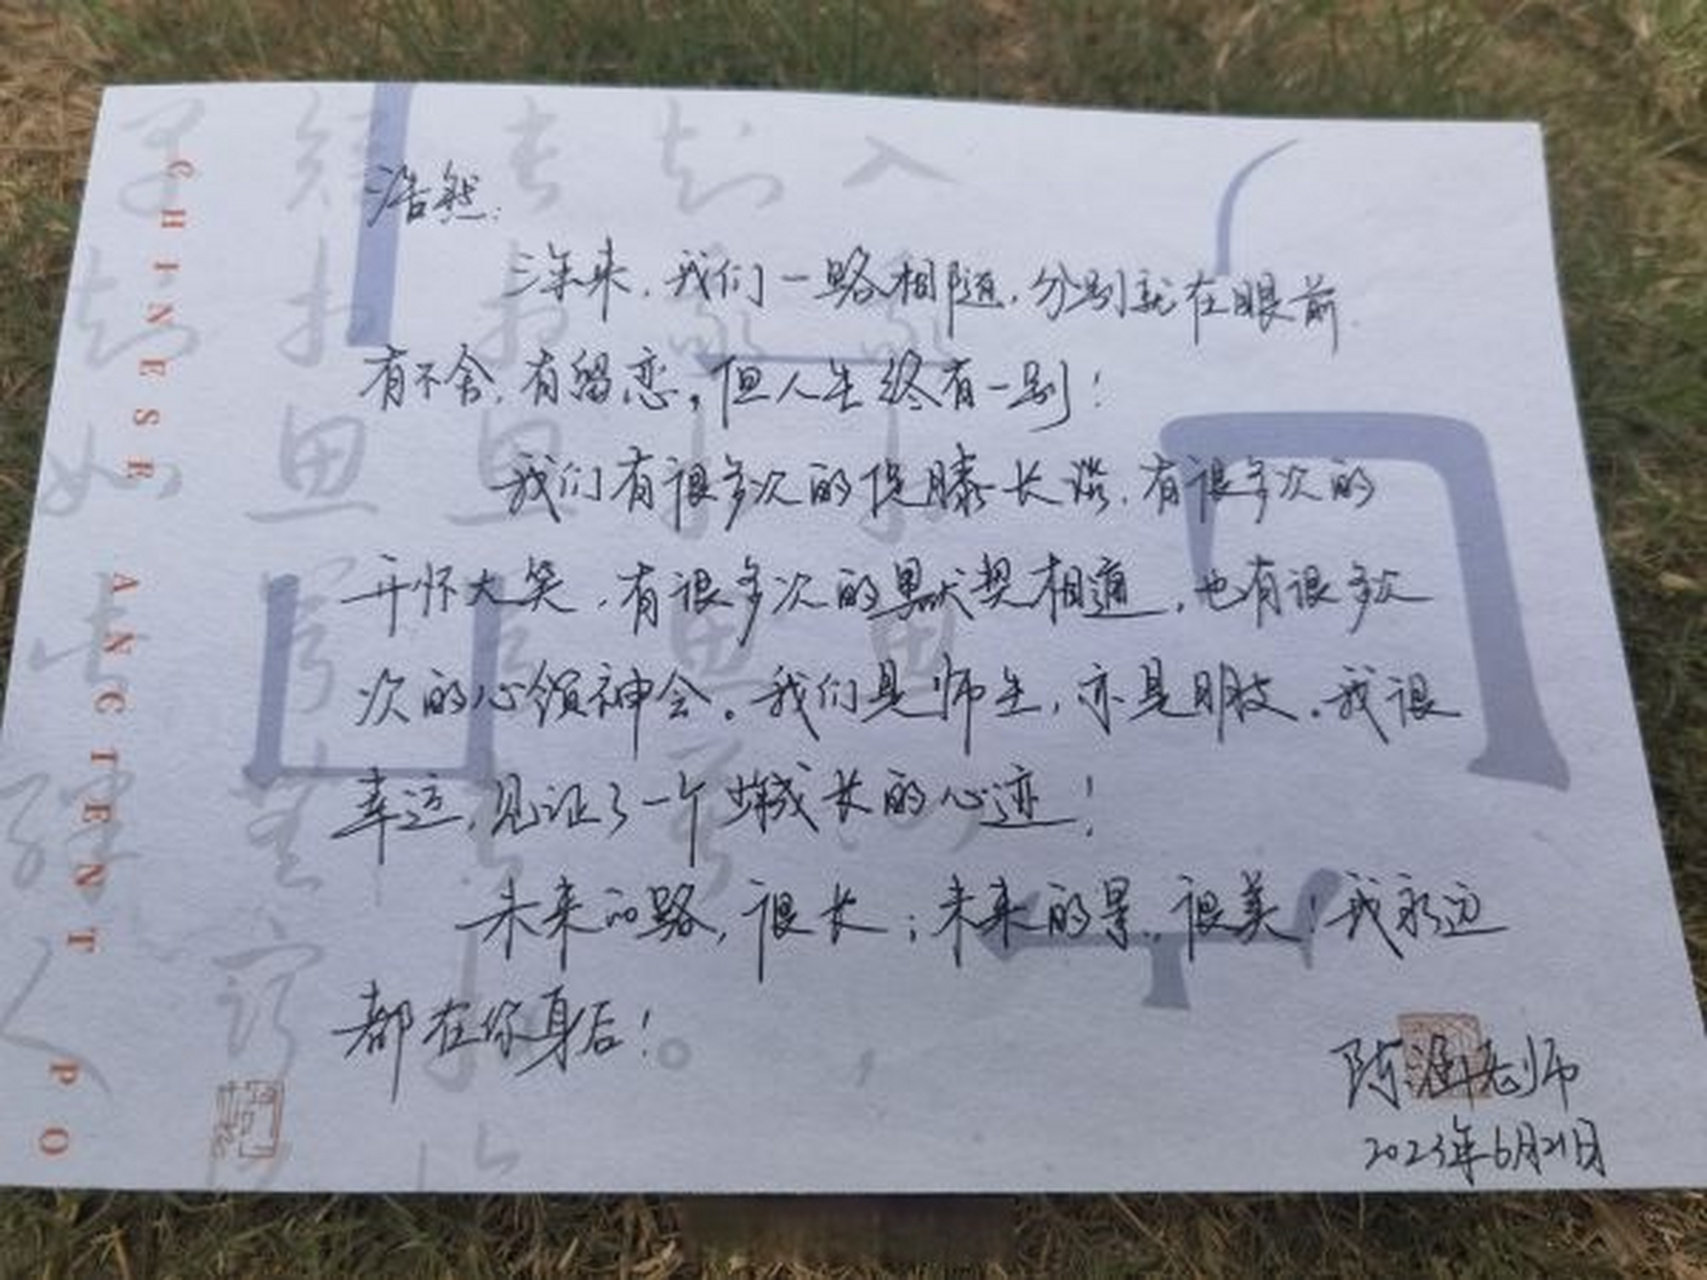 浩然:
三年来,我们一路相随,分别就在眼前
有不舍,有留恋,但人生终有一别!
我们有很多次的促膝长谈,有很多次的
开怀大笑,有很多次的默契相通,也有很多
次的心领神会。我们是师生,亦是朋友。我很
幸运,见证了一个少年成长的心迹!
未来的路,很长;未来的景,很美!我永远
都在你身后!
陈涵老师
2023年6月21日
CHINESE ANCIENT PO